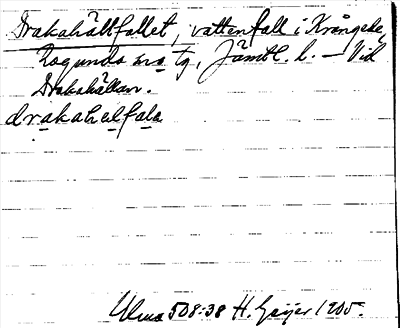 Drakahällfallet, vattenfall i Krångede,
Ragunda sn o tg, Jämtl. l. — Vid
Drakahällan.
drakahalfalɛ
Ulma 508:38 H. Geijer 1905.